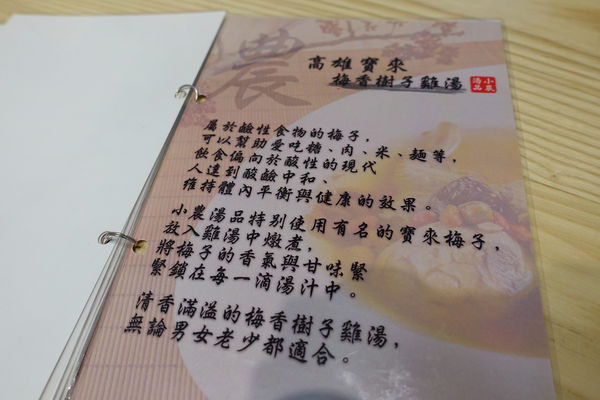 農
高雄寶來
梅香樹子雞湯
小農
湯品
屬於鹼性食物的梅子，
可以幫助愛吃糖、肉、米、麵等，
飲食偏向於酸性的現代
人達到酸鹼中和、
維持體內平衡與健康的效果。
小農湯品特別使用有名的寶來梅子，
放入雞湯中燉煮，
將梅子的香氣與甘味緊
緊鎖在每一滴湯汁中。
清香滿溢的梅香樹子雞湯，
無論男女老少都適合。